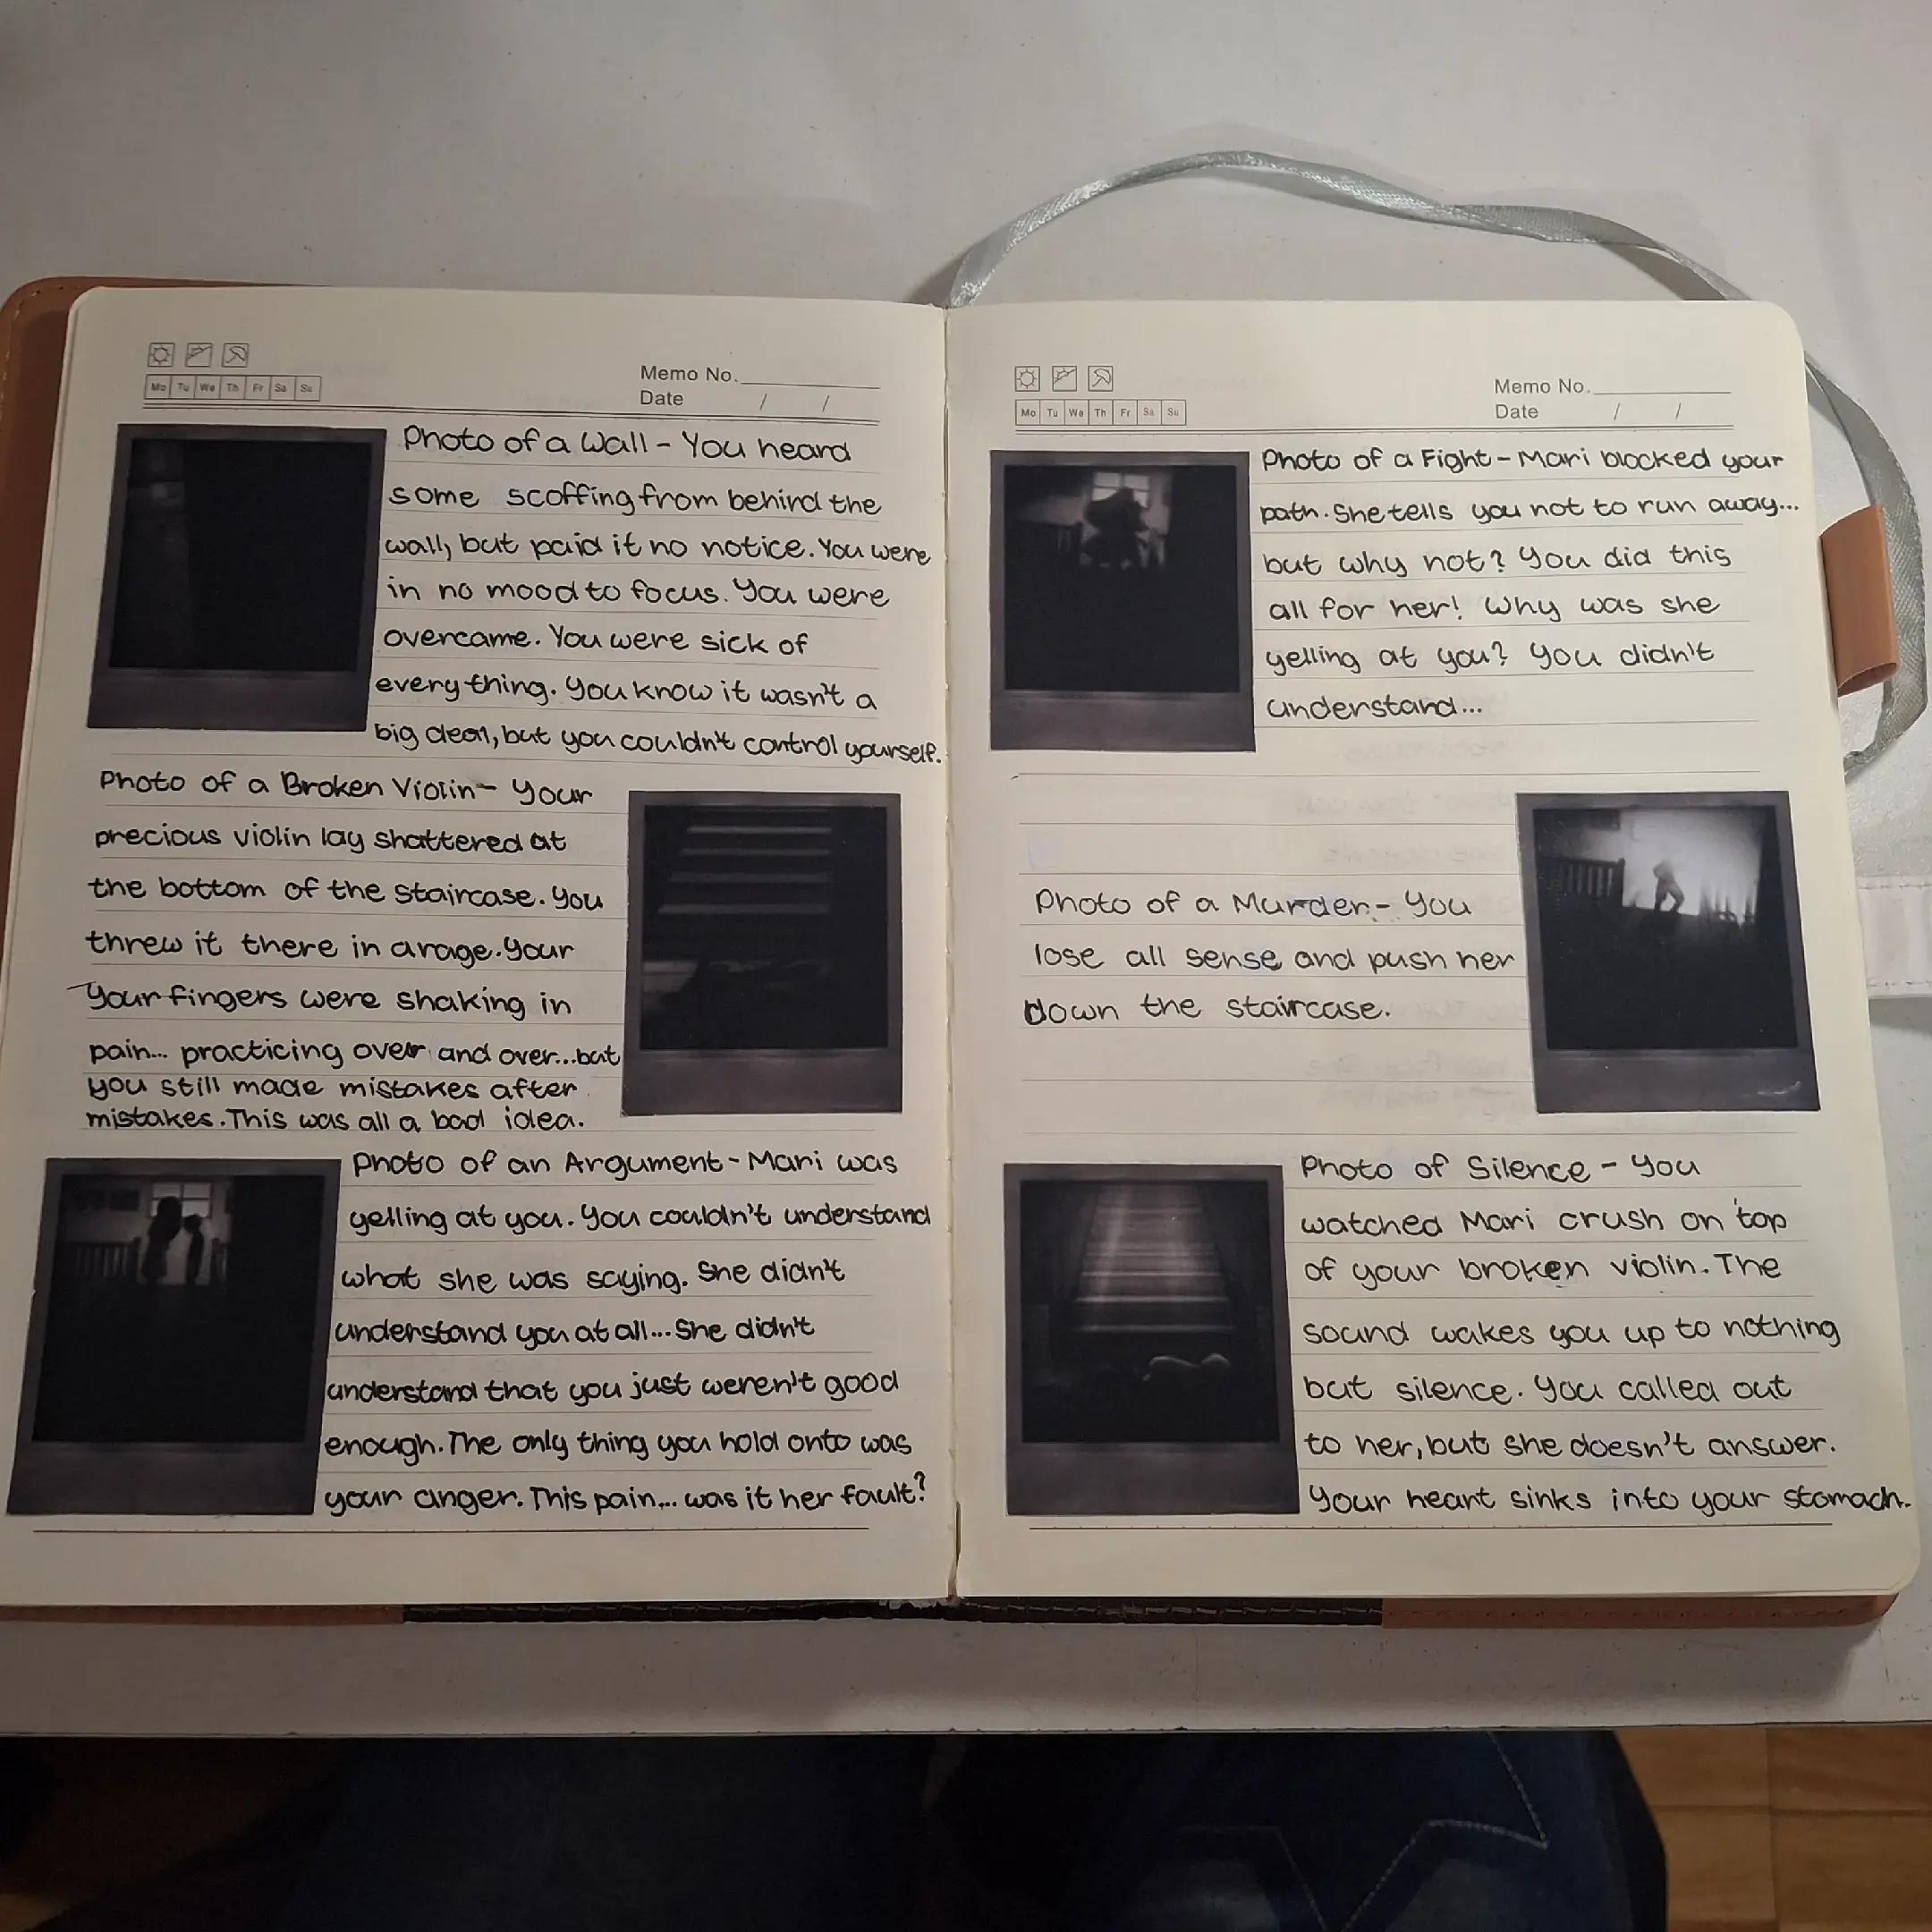 Mo Tu We Th Fr Sa Su
Memo No.
Date / /
Photo of a Wall - You heard
some scoffing from behind the
wall, but paid it no notice. You were
in no mood to focus. You were
overcame. You were sick of
everything. You know it wasn't a
big deal, but you couldn't control yourself.
Photo of a Broken Violin - Your
precious violin lay shattered at
the bottom of the staircase. You
threw it there in a rage. Your
Your fingers were shaking in
pain... practicing over and over...but
you still made mistakes after
mistakes. This was all a bad idea.
Photo of an Argument - Mari was
yelling at you. You couldn't understand
what she was saying. She didn't
understand you at all... She didn't
understand that you just weren't good
enough. The only thing you hold onto was
your anger. This pain... was it her fault?
Mo Tu We Th Fr Sa Su
Memo No.
Date / /
Photo of a Fight - Mari blocked your
path. She tells you not to run away...
but why not? You did this
all for her! Why was she
yelling at you? You didn't
understand...
Photo of a Murder - You
lose all sense and push her
down the staircase.
Photo of Silence - You
watched Mari crush on top
of your broken violin. The
sound wakes you up to nothing
but silence. You called out
to her, but she doesn't answer.
Your heart sinks into your stomach.